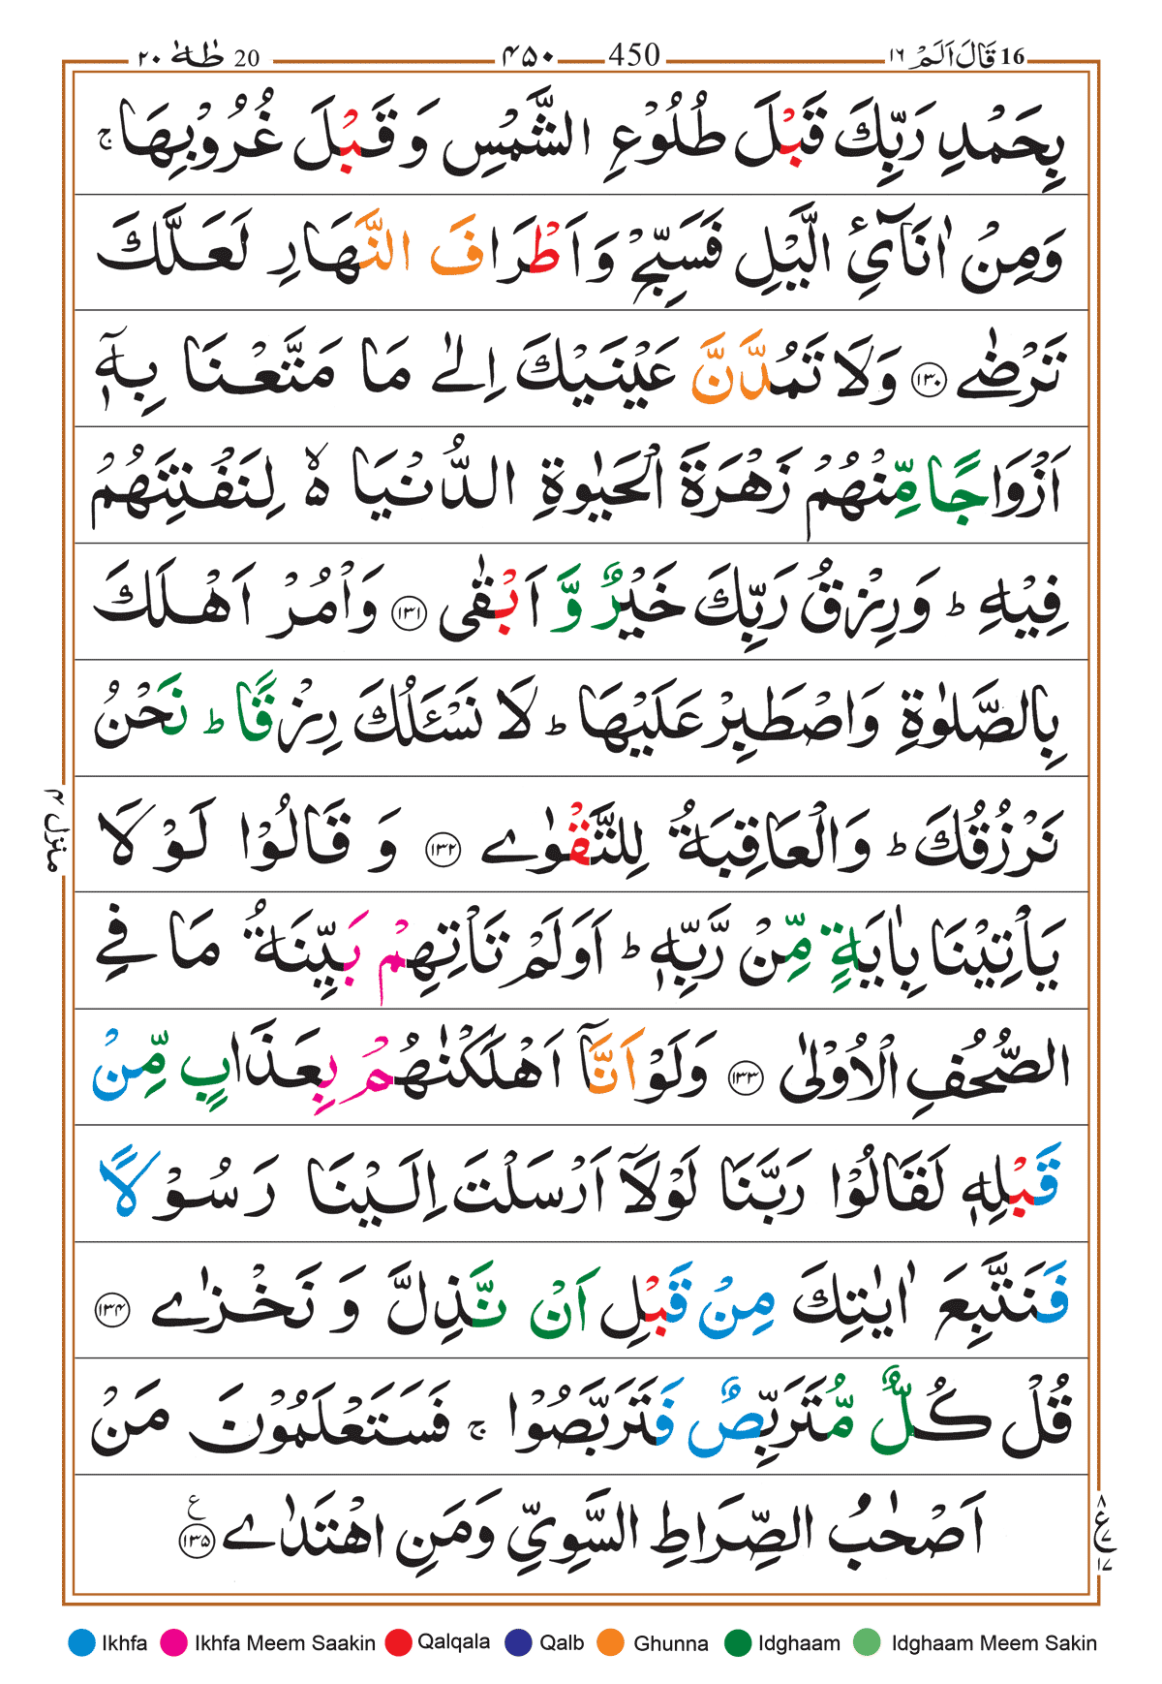 طٰهٰ ٢٠ 20 ۴۵۰ 450 قَالَ اَلَمْ ١٦ 16
بِحَمْدِ رَبِّكَ قَبْلَ طُلُوْعِ الشَّمْسِ وَ قَبْلَ غُرُوْبِهَا ۚ
وَمِنْ اٰنَآئِ الَّيْلِ فَسَبِّحْ وَ اَطْرَافَ النَّهَارِ لَعَلَّكَ
تَرْضٰے ۝١٣٠ وَلَا تَمُدَّنَّ عَيْنَيْكَ اِلٰے مَا مَتَّعْنَا بِهٖٓ
اَزْوَاجًا مِّنْهُمْ زَهْرَةَ الْحَيٰوةِ الدُّنْيَا ۙ۬ لِنَفْتِنَهُمْ
فِيْهِ ؕ وَ رِزْقُ رَبِّكَ خَيْرٌ وَّ اَبْقٰى ۝١٣١ وَاْمُرْ اَهْلَكَ
بِالصَّلٰوةِ وَاصْطَبِرْ عَلَيْهَا ؕ لَا نَسْـَٔلُكَ رِزْقًا ؕ نَحْنُ
نَرْزُقُكَ ؕ وَالْعَاقِبَةُ لِلتَّقْوٰے ۝١٣٢ وَ قَالُوْا لَوْ لَا
يَاْتِيْنَا بِاٰيَةٍ مِّنْ رَّبِّهٖ ؕ اَوَلَمْ تَاْتِهِمْ بَيِّنَةُ مَا فِے
الصُّحُفِ الْاُوْلٰى ۝١٣٣ وَلَوْ اَنَّآ اَهْلَكْنٰهُمْ بِعَذَابٍ مِّنْ
قَبْلِهٖ لَقَالُوْا رَبَّنَا لَوْلَآ اَرْسَلْتَ اِلَيْنَا رَسُوْلًا
فَنَتَّبِعَ اٰيٰتِكَ مِنْ قَبْلِ اَنْ نَّذِلَّ وَ نَخْزٰے ۝١٣٤
قُلْ كُلٌّ مُّتَرَبِّصٌ فَتَرَبَّصُوْا ۚ فَسَتَعْلَمُوْنَ مَنْ
اَصْحٰبُ الصِّرَاطِ السَّوِيِّ وَمَنِ اهْتَدٰے ۝١٣٥ ع
منزل ۴
٨ ع ٧ ١٧
Ikhfa Ikhfa Meem Saakin Qalqala Qalb Ghunna Idghaam Idghaam Meem Sakin